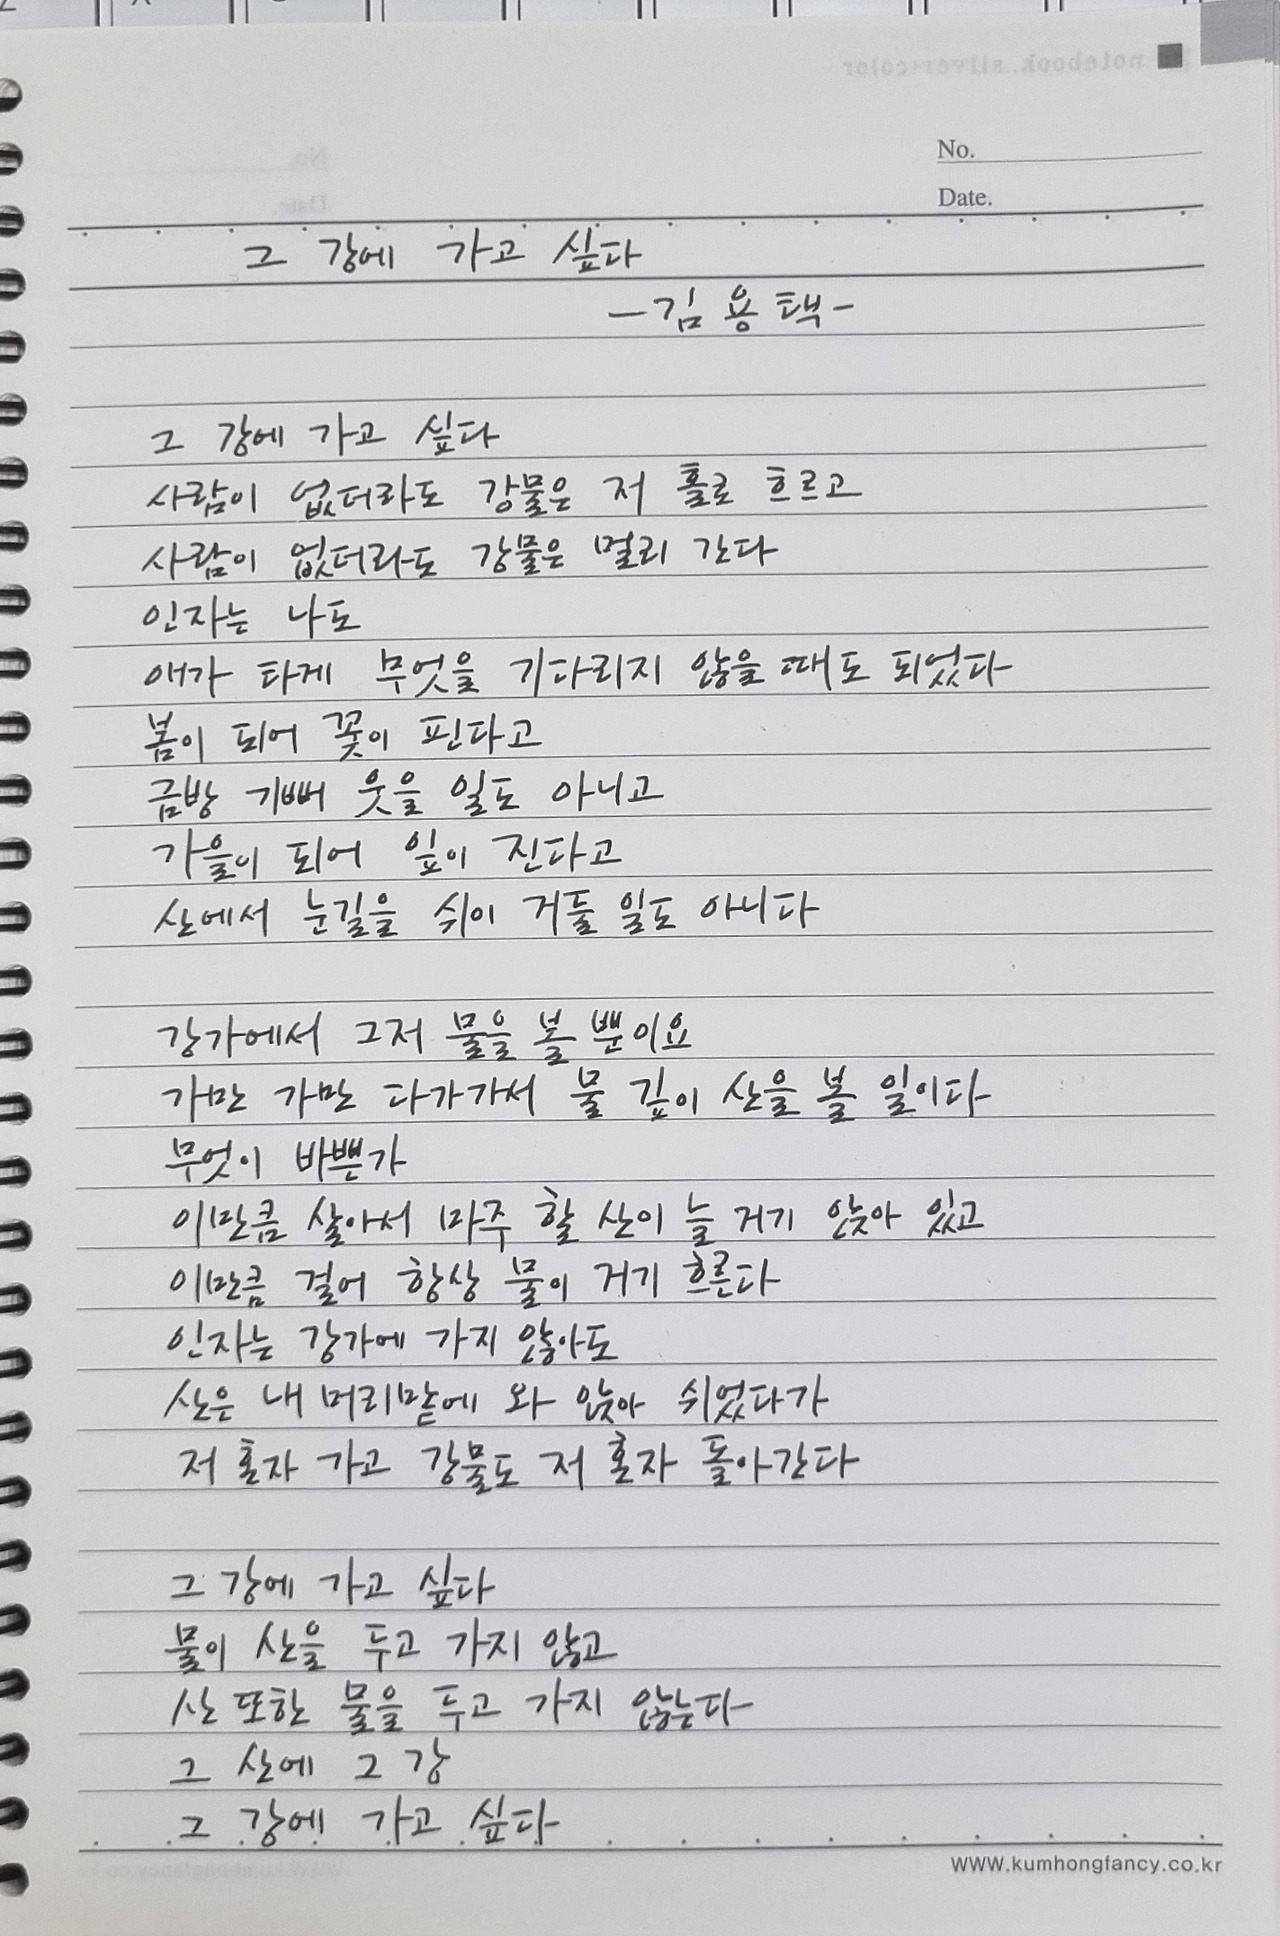 notebook.silver+color
No.
Date.
그 강에 가고 싶다
-김용택-
그 강에 가고 싶다
사람이 없더라도 강물은 저 홀로 흐르고
사람이 없더라도 강물은 멀리 간다
인자는 나도
애가 타게 무엇을 기다리지 않을 때도 되었다
봄이 되어 꽃이 핀다고
금방 기뻐 웃을 일도 아니고
가을이 되어 잎이 진다고
산에서 눈길을 쉬이 거둘 일도 아니다
강가에서 그저 물을 볼 뿐이요
가만 가만 다가가서 물 깊이 산을 볼 일이다
무엇이 바쁜가
이만큼 살아서 마주 할 산이 늘 거기 앉아 있고
이만큼 걸어 항상 물이 거기 흐른다
인자는 강가에 가지 않아도
산은 내 머리맡에 와 앉아 쉬었다가
저 혼자 가고 강물도 저 혼자 돌아간다
그 강에 가고 싶다
물이 산을 두고 가지 않고
산 또한 물을 두고 가지 않는다
그 산에 그 강
그 강에 가고 싶다
www.kumhongfancy.co.kr